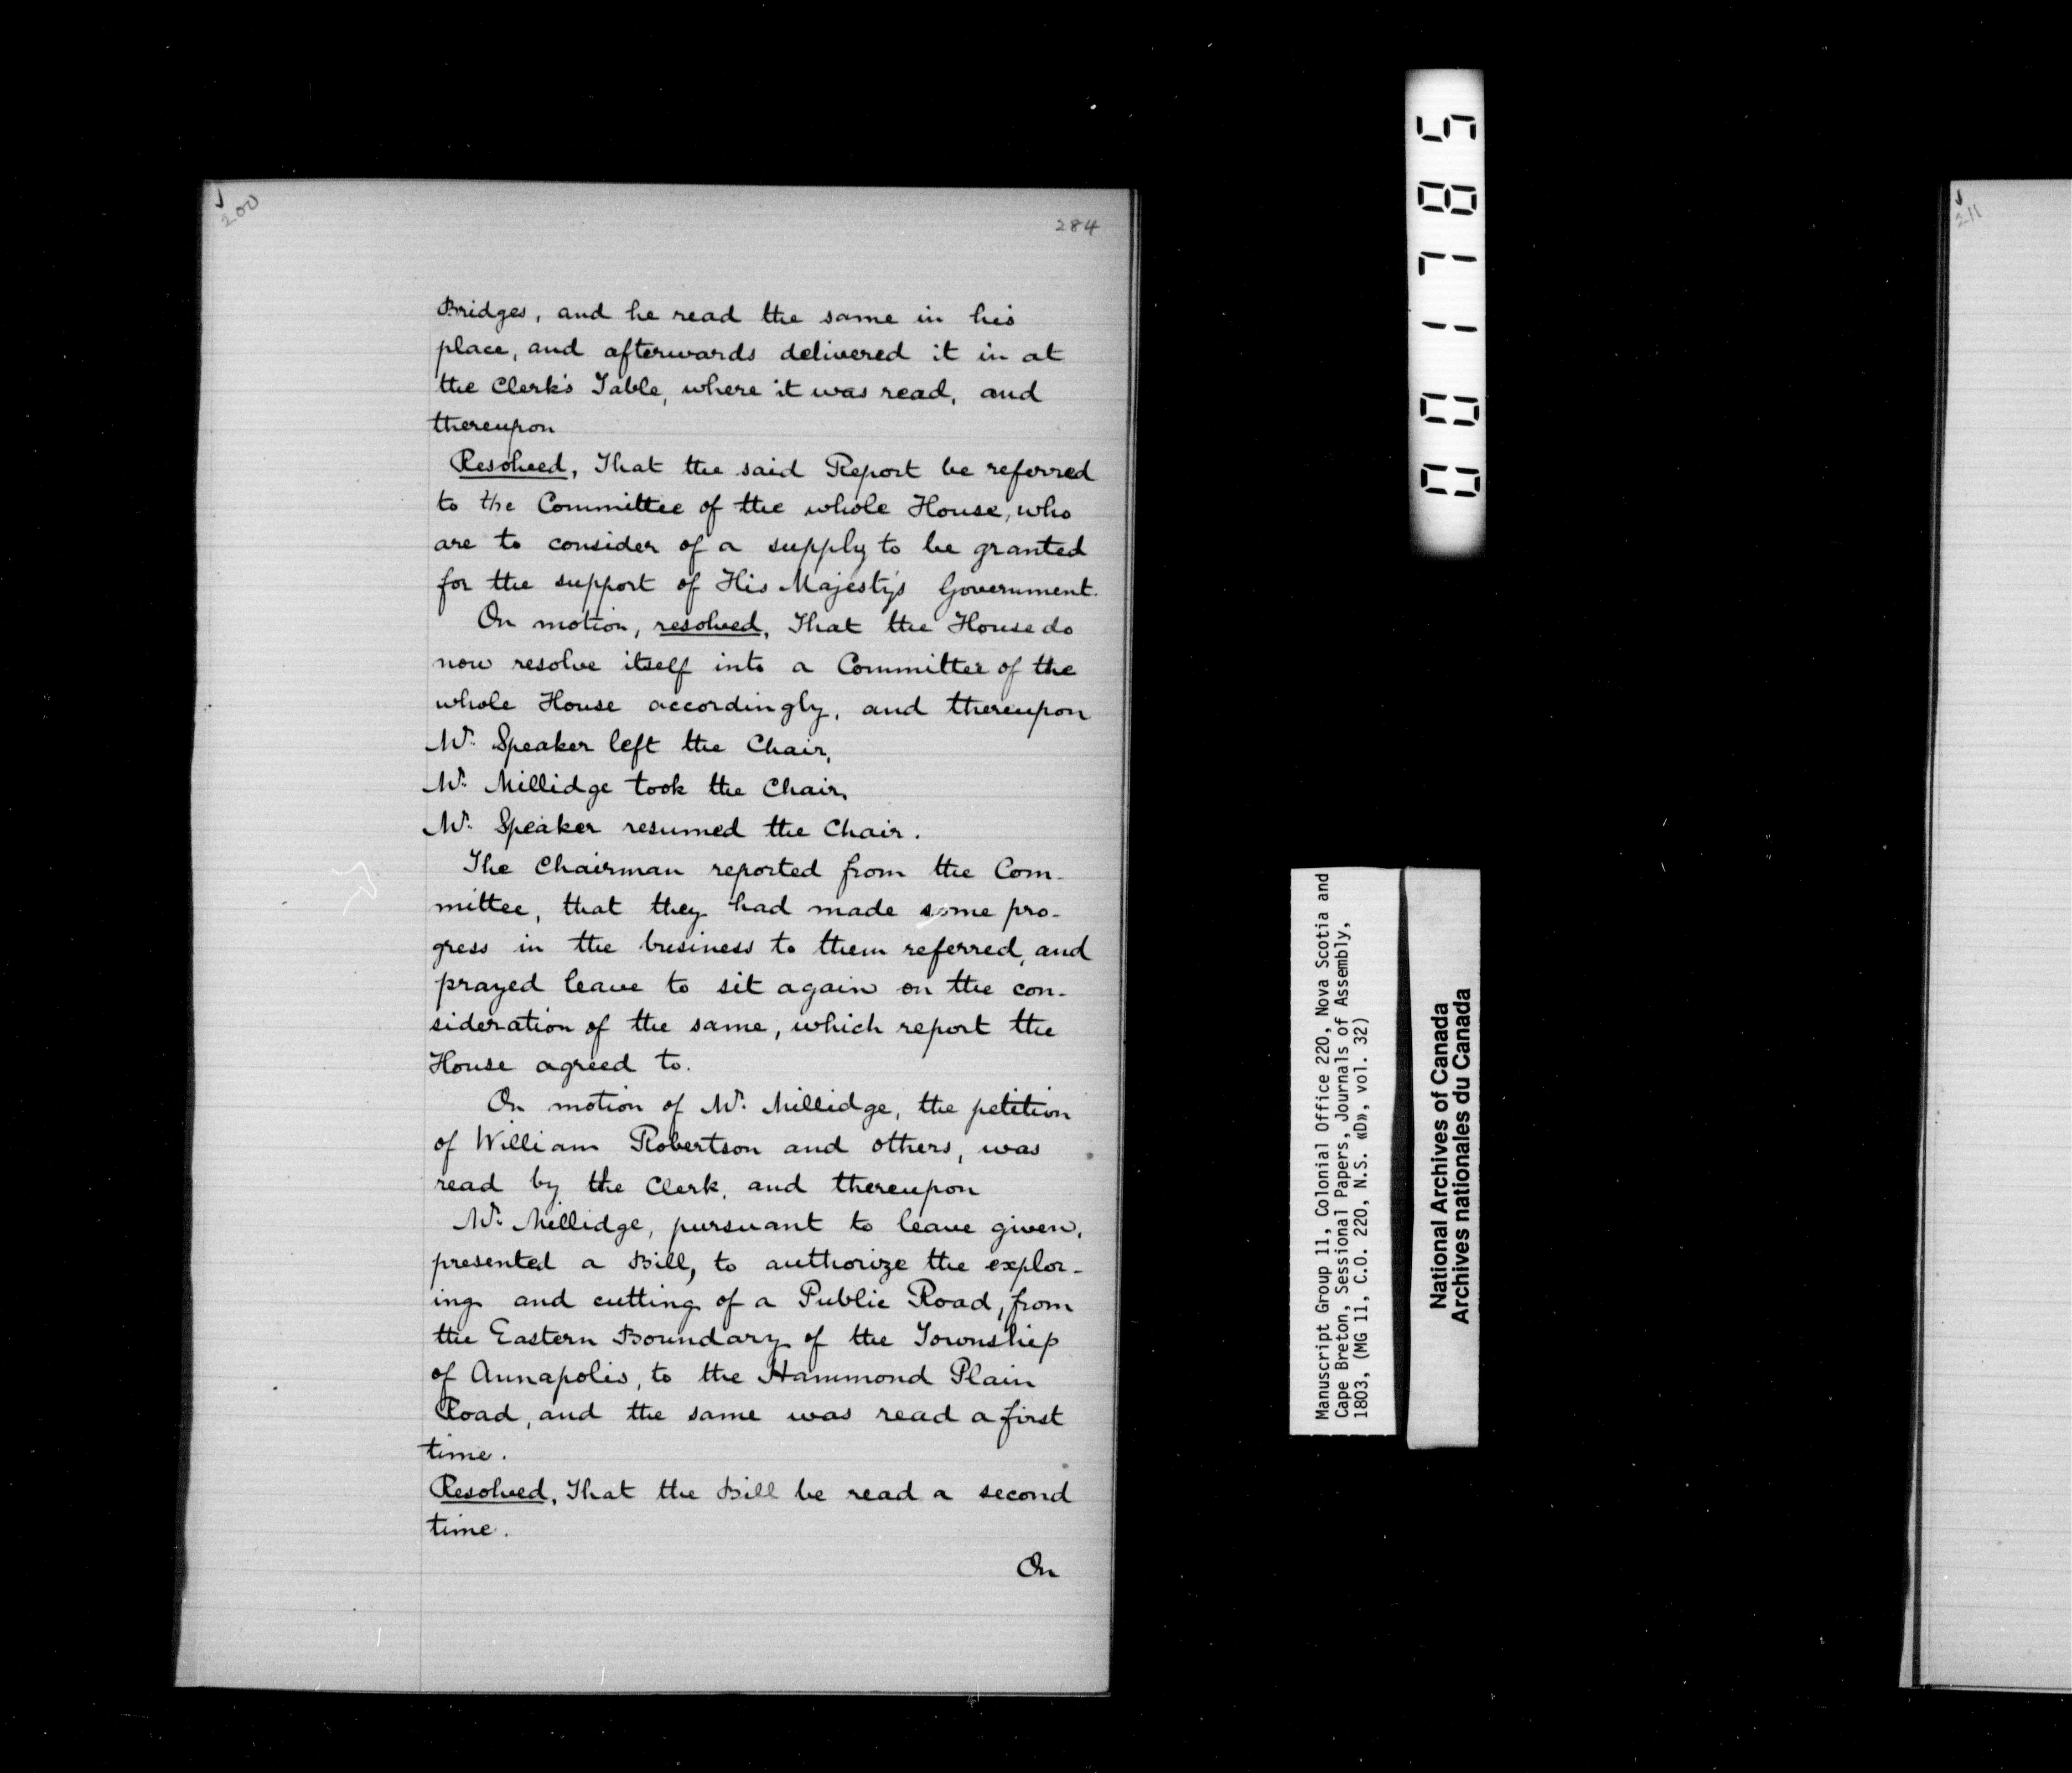 J
200
284
Bridges, and he read the same in his
place, and afterwards delivered it in at
the Clerk's Table, where it was read, and
thereupon
Resolved, That the said Report be referred
to the Committee of the whole House, who
are to consider of a supply to be granted
for the support of His Majesty's Government.
On motion, resolved, That the House do
now resolve itself into a Committee of the
whole House accordingly, and thereupon
Mr. Speaker left the Chair,
Mr. Millidge took the Chair,
Mr. Speaker resumed the Chair.
The Chairman reported from the Com-
mittee, that they had made some pro-
gress in the business to them referred, and
prayed leave to sit again on the con-
sideration of the same, which report the
House agreed to.
On motion of Mr. Millidge, the petition
of William Robertson and others, was
read by the Clerk, and thereupon
Mr. Millidge, pursuant to leave given,
presented a Bill, to authorize the explor-
ing and cutting of a Public Road, from
the Eastern Boundary of the Township
of Annapolis, to the Hammond Plain
Road, and the same was read a first
time.
Resolved, That the Bill be read a second
time.
On
001785
Manuscript Group 11, Colonial Office 220, Nova Scotia and
Cape Breton, Sessional Papers, Journals of Assembly,
1803, (MG 11, C.O. 220, N.S. «D», vol. 32)
National Archives of Canada
Archives nationales du Canada
J
211